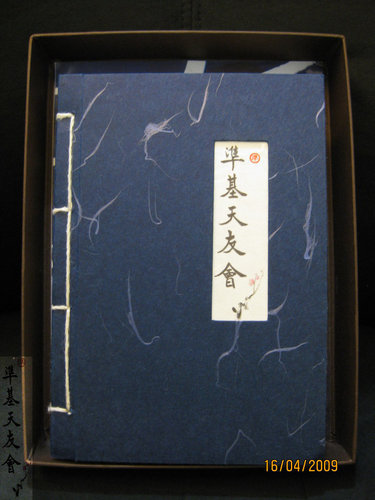 準基天友會
準基天友會
16/04/2009